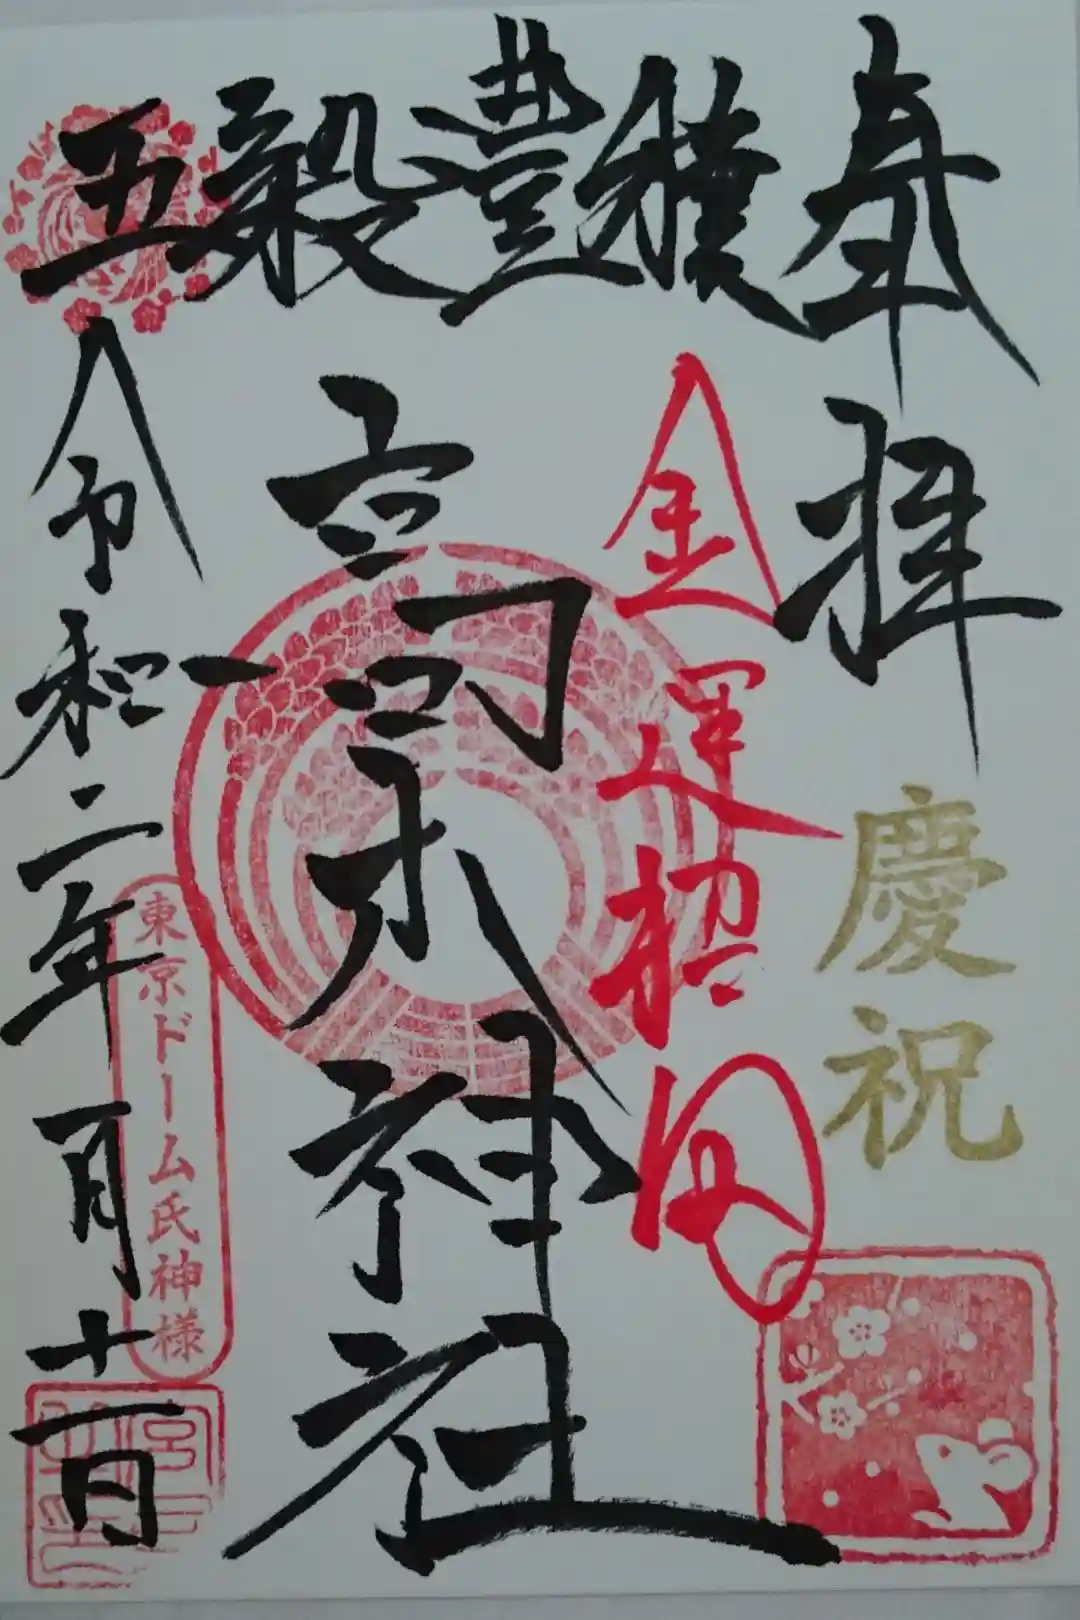 五穀豊穣
奉拝
慶祝
金運招
高木神社
令和二年一月十一日
東京ドーム氏神様